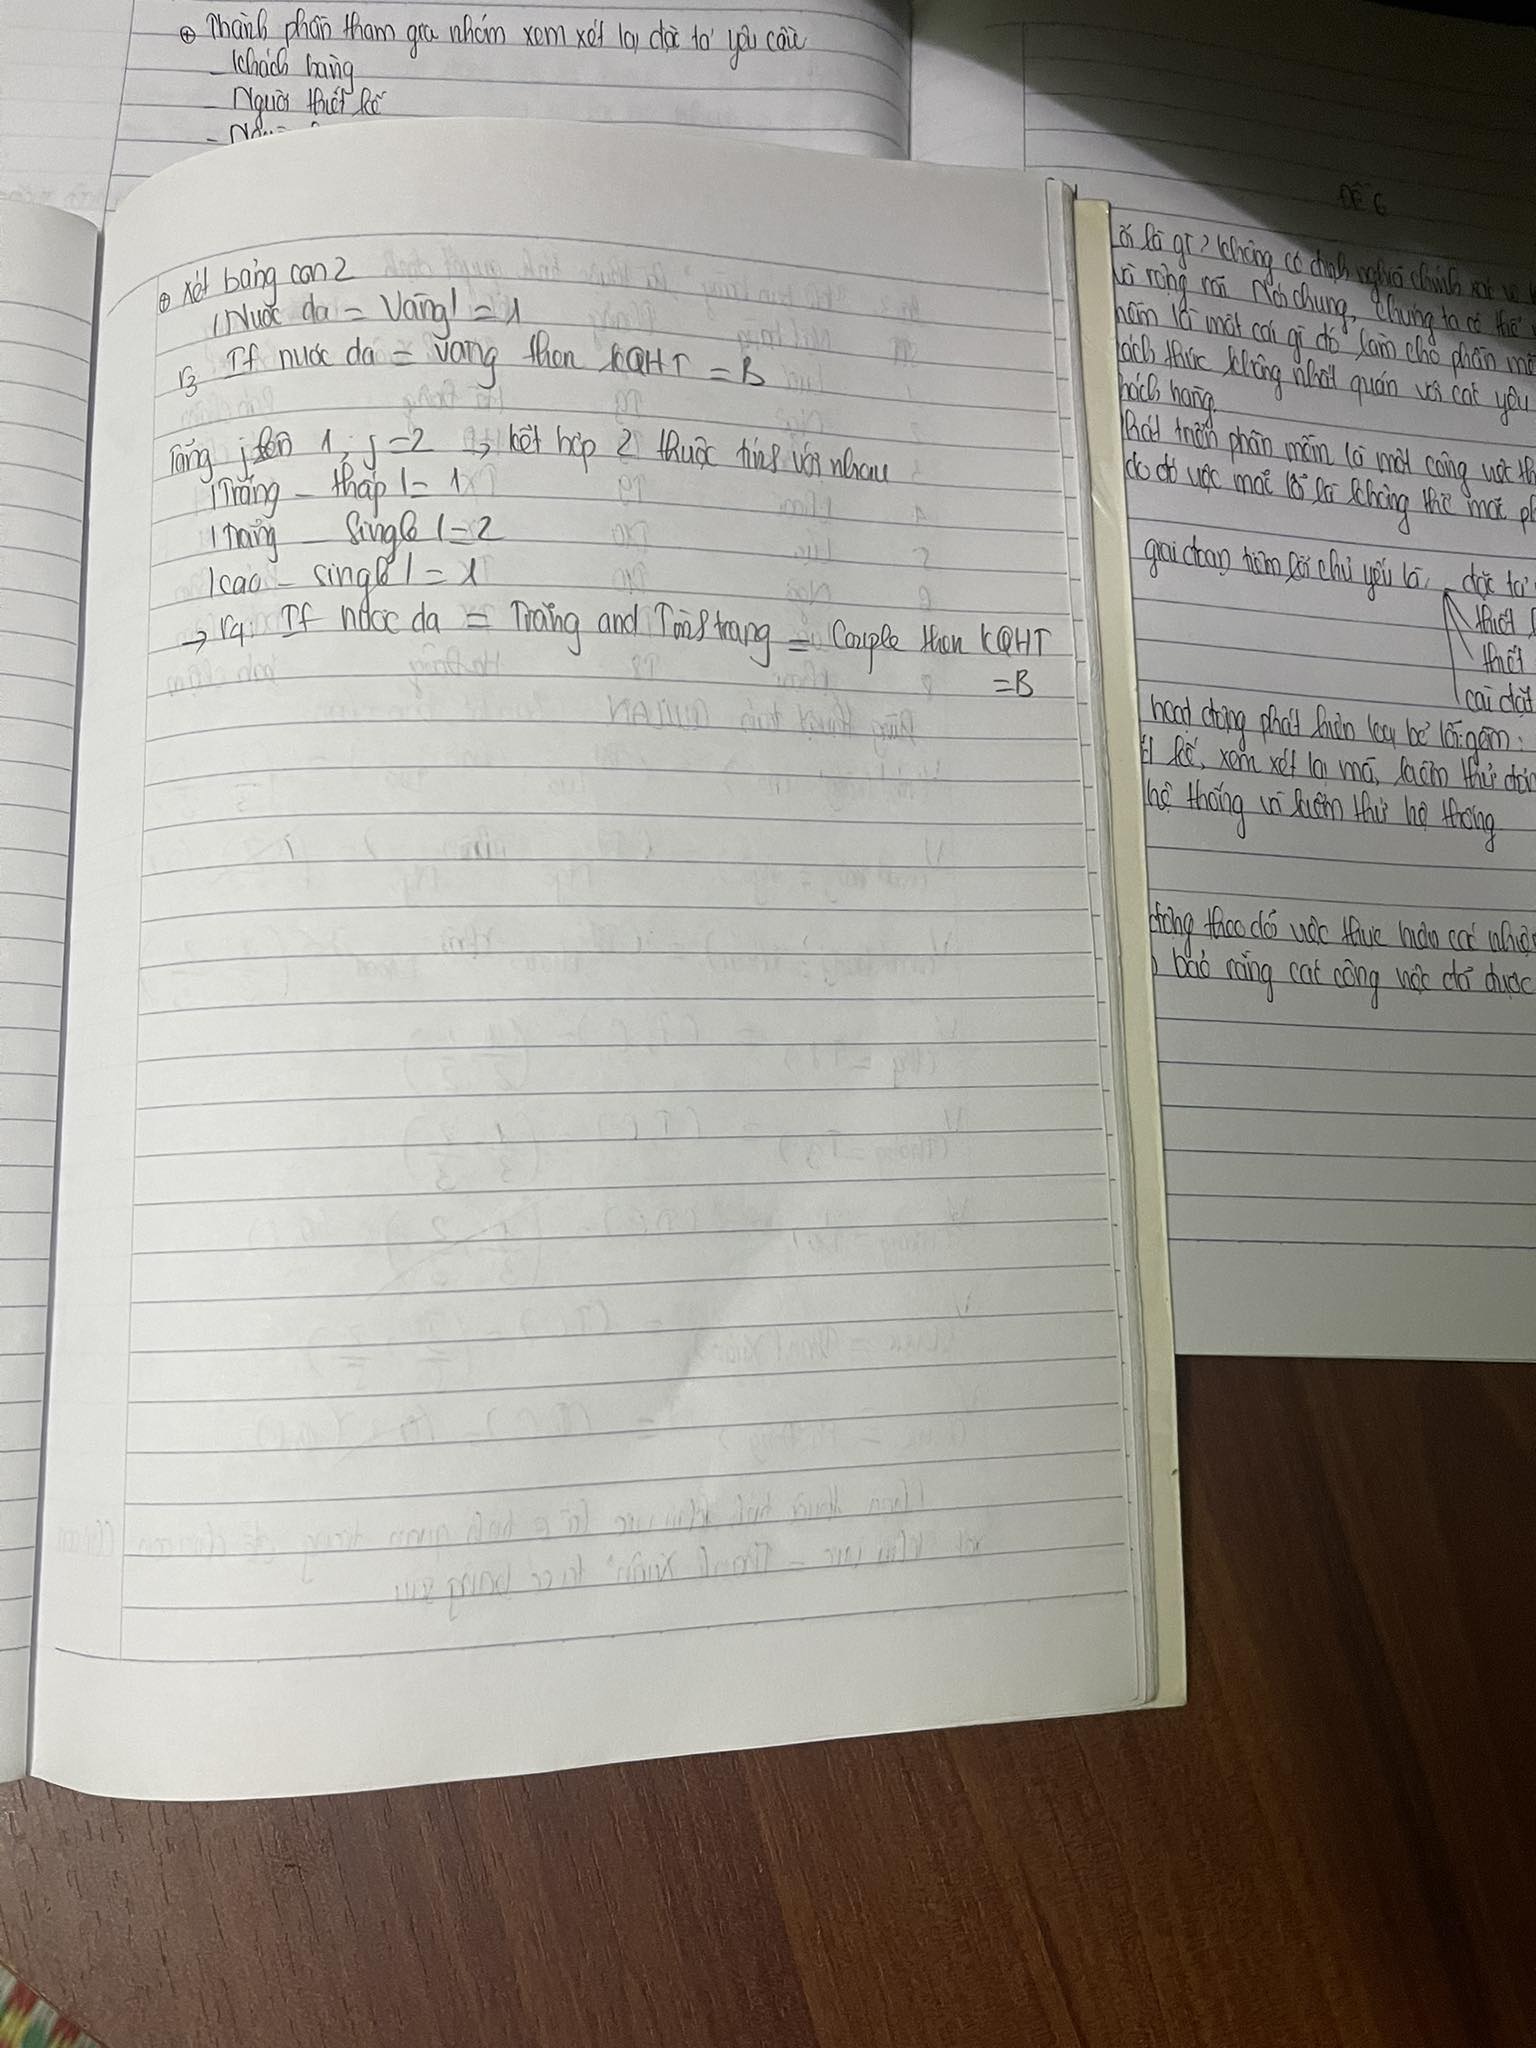 ⊕ Thành phần tham gia nhóm xem xét lại đặc tả yêu cầu
- Khách hàng
- Người thiết kế
⊕ xét bảng con 2
|Nước da = Vàng| = 1
r3 If nước da = vàng then KQHT = B
Tăng j lên 1, j = 2 → kết hợp 2 thuộc tính với nhau
|Trắng - thấp| = 1
|Trắng - Single| = 2
|cao - single| = 1
→ r4: If nước da = Trắng and Tình trạng = Couple then KQHT
= B
ĐỀ 6
là gì? Không có định nghĩa chính xác
rõ ràng Nói chung, chúng ta có thể
mềm là một cái gì đó làm cho phần mề
cách thức không nhất quán với các yêu
khách hàng.
Phát triển phần mềm là một công việc
do đó việc mắc lỗi là không thể
giai đoạn tiềm lỗi chủ yếu là - đặc tả
thiết
thiết
cài đặt
hoạt động phát hiện loại bỏ lỗi gồm:
kế, xem xét lại mã, kiểm thử
hệ thống và kiểm thử hệ thống
theo dõi việc thực hiện các
bảo rằng các công việc đã được